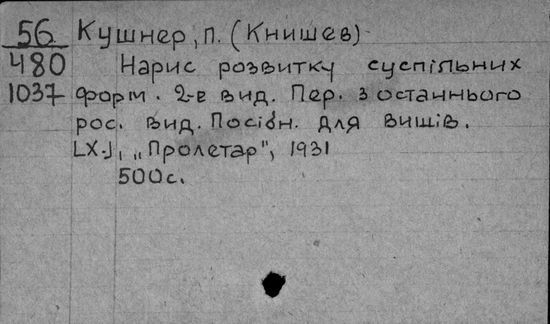 56 Кушнер, П. (Книшев)
480 Нарис розвитку суспільних
1037 форм. 2-е вид. Пер. з останнього
рос. вид. Посібн. для вишів.
[Х.], „Пролетар", 1931
500с.